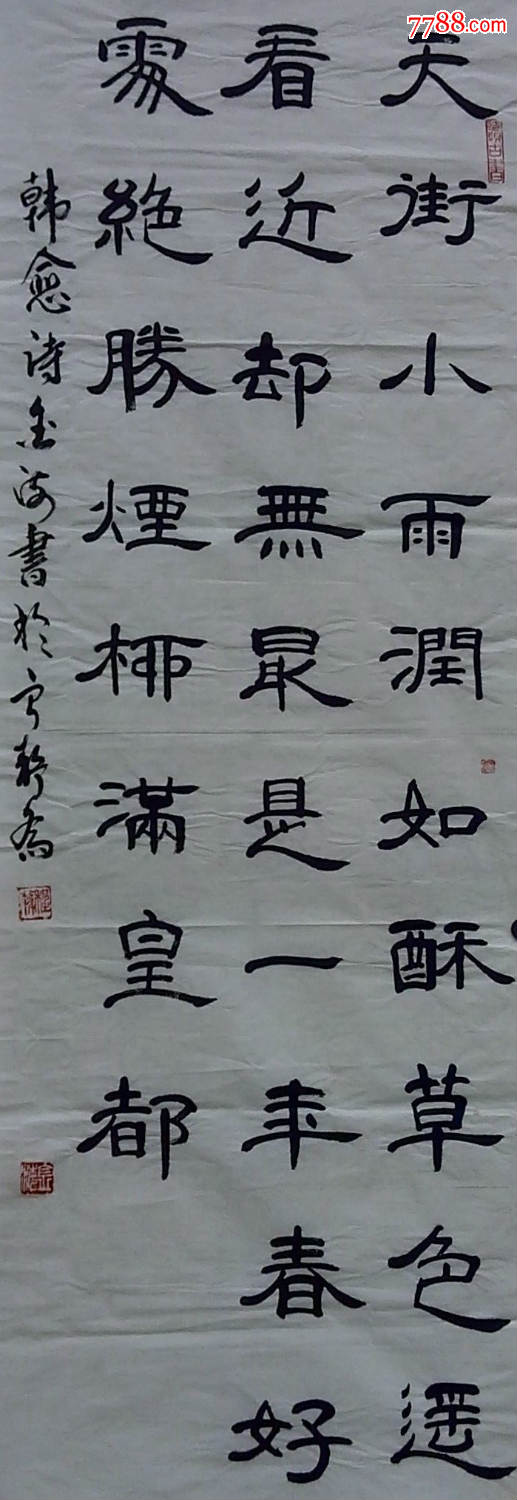 天街小雨潤如酥草色遥
看近却無最是一年春好
處絶勝煙柳滿皇都
韩愈诗金海書於
7788.com